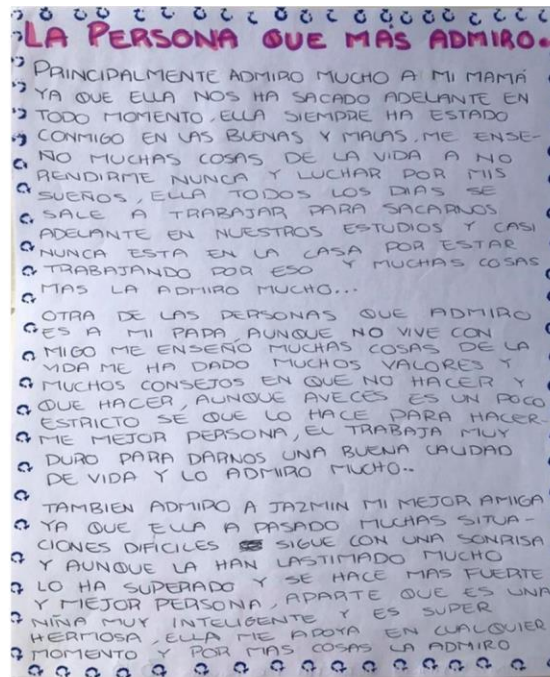 LA PERSONA QUE MAS ADMIRO.
PRINCIPALMENTE ADMIRO MUCHO A MI MAMÁ
YA QUE ELLA NOS HA SACADO ADELANTE EN
TODO MOMENTO, ELLA SIEMPRE HA ESTADO
CONMIGO EN LAS BUENAS Y MALAS, ME ENSE-
ÑO MUCHAS COSAS DE LA VIDA A NO
RENDIRME NUNCA Y LUCHAR POR MIS
SUEÑOS, ELLA TODOS LOS DIAS SE
SALE A TRABAJAR PARA SACARNOS
ADELANTE EN NUESTROS ESTUDIOS Y CASI
NUNCA ESTA EN LA CASA POR ESTAR
TRABAJANDO POR ESO Y MUCHAS COSAS
MAS LA ADMIRO MUCHO...
OTRA DE LAS PERSONAS QUE ADMIRO
ES A MI PAPA AUNQUE NO VIVE CON
MIGO ME ENSEÑO MUCHAS COSAS DE LA
VIDA ME HA DADO MUCHOS VALORES Y
MUCHOS CONSEJOS EN QUE NO HACER Y
QUE HACER, AUNQUE AVECES ES UN POCO
ESTRICTO SE QUE LO HACE PARA HACER-
ME MEJOR PERSONA, EL TRABAJA MUY
DURO PARA DARNOS UNA BUENA CALIDAD
DE VIDA Y LO ADMIRO MUCHO..
TAMBIEN ADMIRO A JAZMIN MI MEJOR AMIGA
YA QUE ELLA A PASADO MUCHAS SITUA-
CIONES DIFICILES SIGUE CON UNA SONRISA
Y AUNQUE LA HAN LASTIMADO MUCHO
LO HA SUPERADO Y SE HACE MAS FUERTE
Y MEJOR PERSONA, APARTE QUE ES UNA
NIÑA MUY INTELIGENTE Y ES SUPER
HERMOSA, ELLA ME APOYA EN CUALQUIER
MOMENTO Y POR MAS COSAS LA ADMIRO